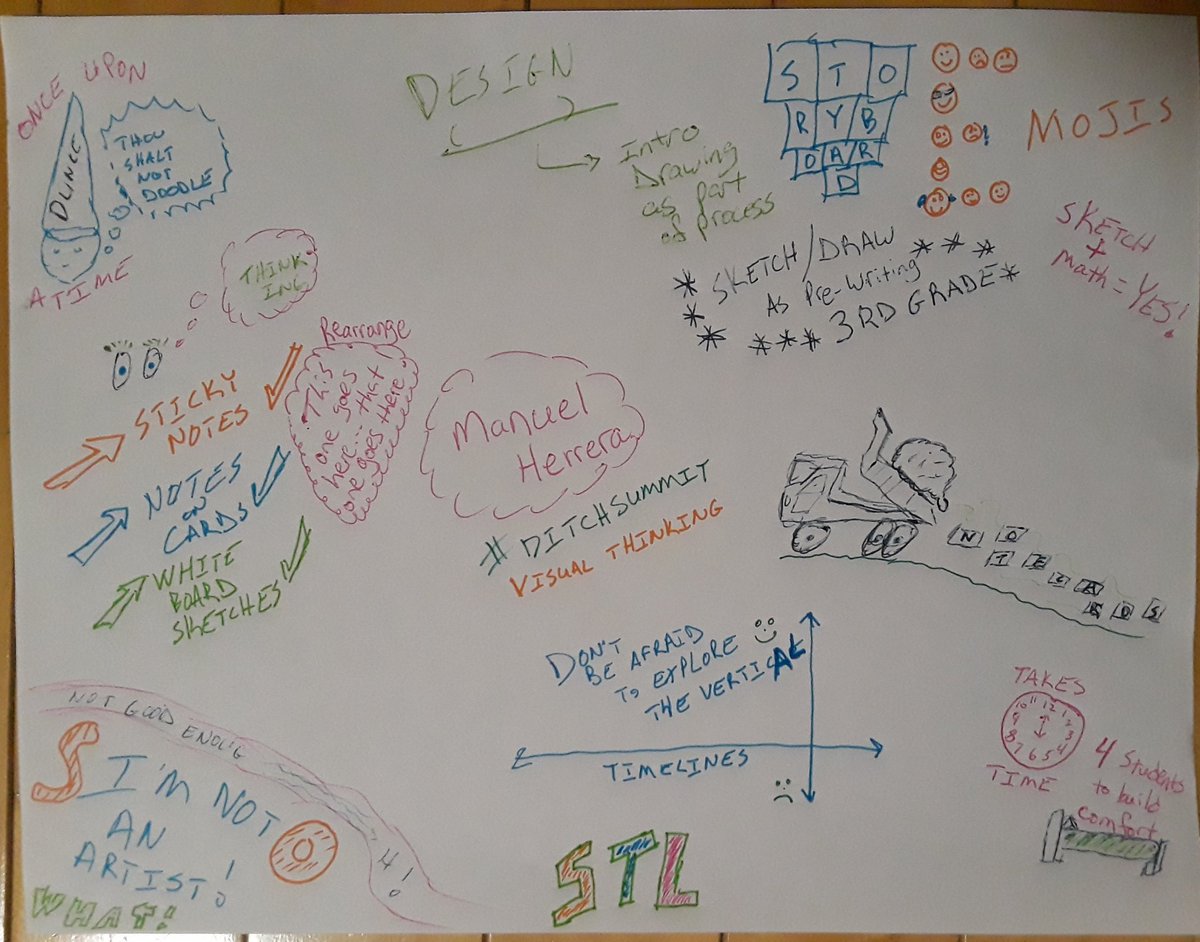 ONCE UPON
A TIME
DUNCE
THOU
SHALT
NOT
DOODLE
DESIGN
Intro
Drawing
as part
of process
S T O
R Y B
O A R
D
MOJIS
SKETCH
+
Math = YES!
* SKETCH/DRAW * * *
* As Pre-Writing
* * * * 3RD GRADE *
THINK
ING
STICKY
NOTES
NOTES
ON
CARDS
WHITE
BOARD
SKETCHES
Rearrange
This
one goes
here... that
one goes there
Manuel
Herrera
#DITCHSUMMIT
VISUAL THINKING
NO
TECA
RDS
DON'T
BE AFRAID
TO EXPLORE
THE VERTICAL
TIMELINES
TAKES
11 12 1
10 2
9 3
8 4
7 6 5
TIME
4 Students
to build
comfort
NOT GOOD ENOUG
4!
SO
I'M NOT
AN
ARTIST!
WHAT!
STL